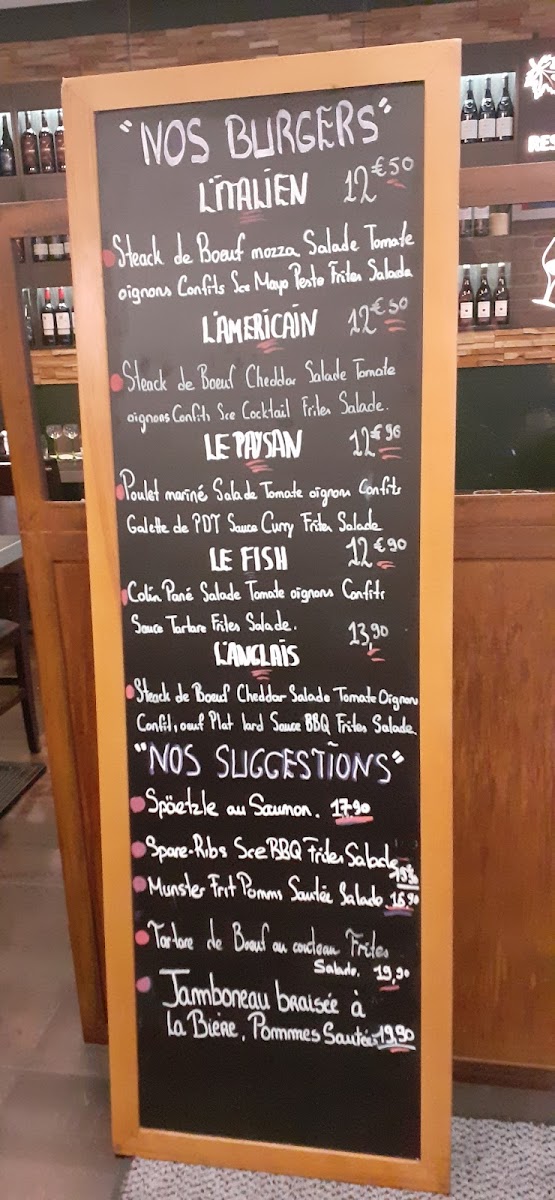 "NOS BURGERS"
L'ITALIEN 12€50
Steack de Boeuf mozza Salade Tomate
oignons Confits Sce Mayo Pesto Frites Salade
L'AMERICAIN 12€50
Steack de Boeuf Cheddar Salade Tomate
oignons Confits Sce Cocktail Frites Salade.
LE PAYSAN 12€90
Poulet mariné Salade Tomate oignons Confits
Galette de PDT Sauce Curry Frites Salade
LE FISH 12€90
Colin Pané Salade Tomate oignons Confits
Sauce Tartare Frites Salade.
L'ANGLAIS 13,90
Steack de Boeuf Cheddar Salade Tomate Oignons
Confit, oeuf Plat lard Sauce BBQ Frites Salade
"NOS SUGGESTIONS"
Spöetzle au Saumon. 17,90
Spare-Ribs Sce BBQ Frites Salade
Munster Frit Pomms Sautée Salade. 16,90
Tartare de Boeuf au couteau Frites
Salade. 19,90
Jamboneau braisée à
la Bière, Pommes Sautées 19,90
RES